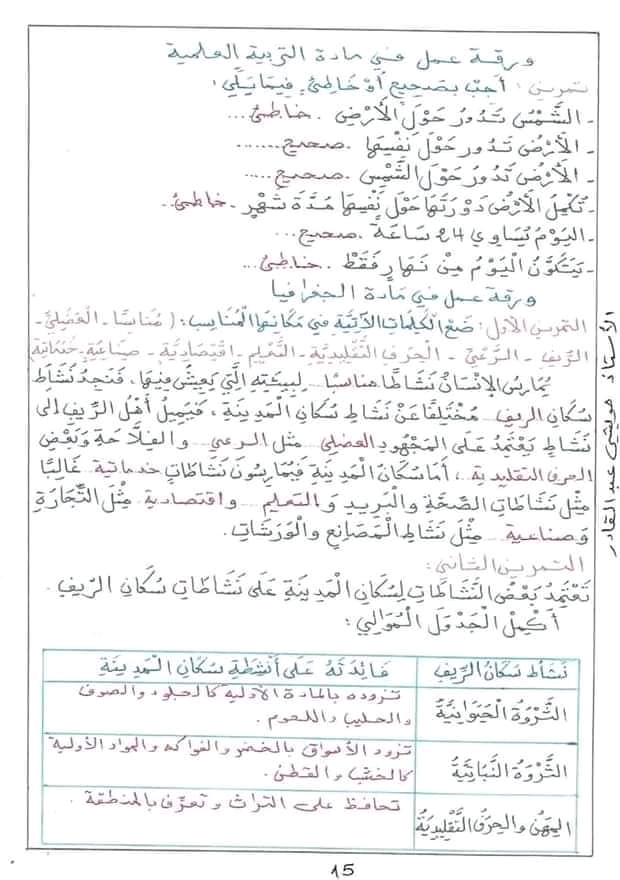 ورقة عمل في مادة التربية العلمية
تمرين : أجب بصحيح أَوْ خَاطِئ، فيمَا يَلِي :
- الشَّمْسُ تَدُورُ حَوْلَ الْأَرْضِ . خاطئ...
- الْأَرْضُ تَدُورُ حَوْلَ نَفْسِهَا .صحيح.......
- الْأَرْضُ تَدُورُ حَوْلَ الشَّمْسِ .صحيح.....
- تُكْمِلُ الْأَرْضُ دَوْرَتَهَا حَوْلَ نَفْسِهَا مُدَّةَ شَهْرٍ .خاطئ..
- الْيَوْمُ يُسَاوِي 24 سَاعَة .صحيح...
- يَتَكَوَّنُ الْيَوْمُ مِنْ نَهَارٍ فَقَطْ . خاطئ...
ورقة عمل في مَادة الجغرافيا
التمرين الأول : ضَعْ الْكَلِمَاتِ الْآتِيَّةِ فِي مَكَانِهَا الْمُنَاسِبِ : ( مُنَاسِبًا - الْعَضَلِيِّ -
الرِّيفِ - الرَّعْيِ - الْحِرَفِ التَّقْلِيدِيَّةِ - التَّعْلِيمِ - اقْتِصَادِيَّةِ - صِنَاعِيَّةِ - خَدَمَاتِيَّة)
يُمَارِسُ الْإِنْسَانُ نَشَاطًا مناسبًا.. لِبِيئَتِهِ الَّتِي يَعِيشُ فِيهَا، فَنَجِدُ نَشَاطَ
سُكَّانِ الريف.. مُخْتَلِفًا عَنْ نَشَاطِ سُكَّانِ الْمَدِينَةِ ، فَيَمِيلُ أَهْلُ الرِّيفِ إلى
نَشَاطٍ يَعْتَمِدُ عَلَى الْمَجْهُودِ العضلي.. مثل الرعي... والْفِلَاحَةِ وَبَعْضِ
الحرف التقليدية..، أَمَّا سُكَّانُ الْمَدِينَةِ فَيُمَارِسُونَ نَشَاطَاتٍ خدماتية.. غَالِبًا
مِثْلَ نَشَاطَاتِ الصِّحَّةِ وَالْبَرِيدِ وَ التعليم... و اقتصادية.. مِثْلَ التِّجَارَةِ
وَ صناعية... مِثْلَ نَشَاطِ الْمَصَانِعِ وَالْوَرَشَاتِ.
التمرين الثاني :
تَعْتَمِدُ بَعْضُ النَّشَاطَاتِ لِسُكَّانِ الْمَدِينَةِ عَلَى نَشَاطَاتِ سُكَّانِ الرِّيفِ .
أَكْمِلْ الْجَدْوَلَ الْمُوَالِي :
نَشَاطُ سُكَّانُ الرِّيفِ
فَائِدَتُهُ عَلَى أَنْشِطَةِ سُكَّانِ الْمَدِينَةِ
الثَّرْوَةُ الْحَيَوَانِيَّةُ
تزوده بالمادة الأولية كالجلود والصوف
والحليب واللحوم .
الثَّرْوَةُ النَّبَاتِيَّةُ
تزود الأسواق بالخضر والفواكه والمواد الأولية
كالخشب والقطن .
الْمِهَنُ والْحِرَفُ التَّقْلِيدِيَّةُ
تحافظ على التراث وتعرّف بالمنطقة .
الأستاذ هويشي عبد القادر
15